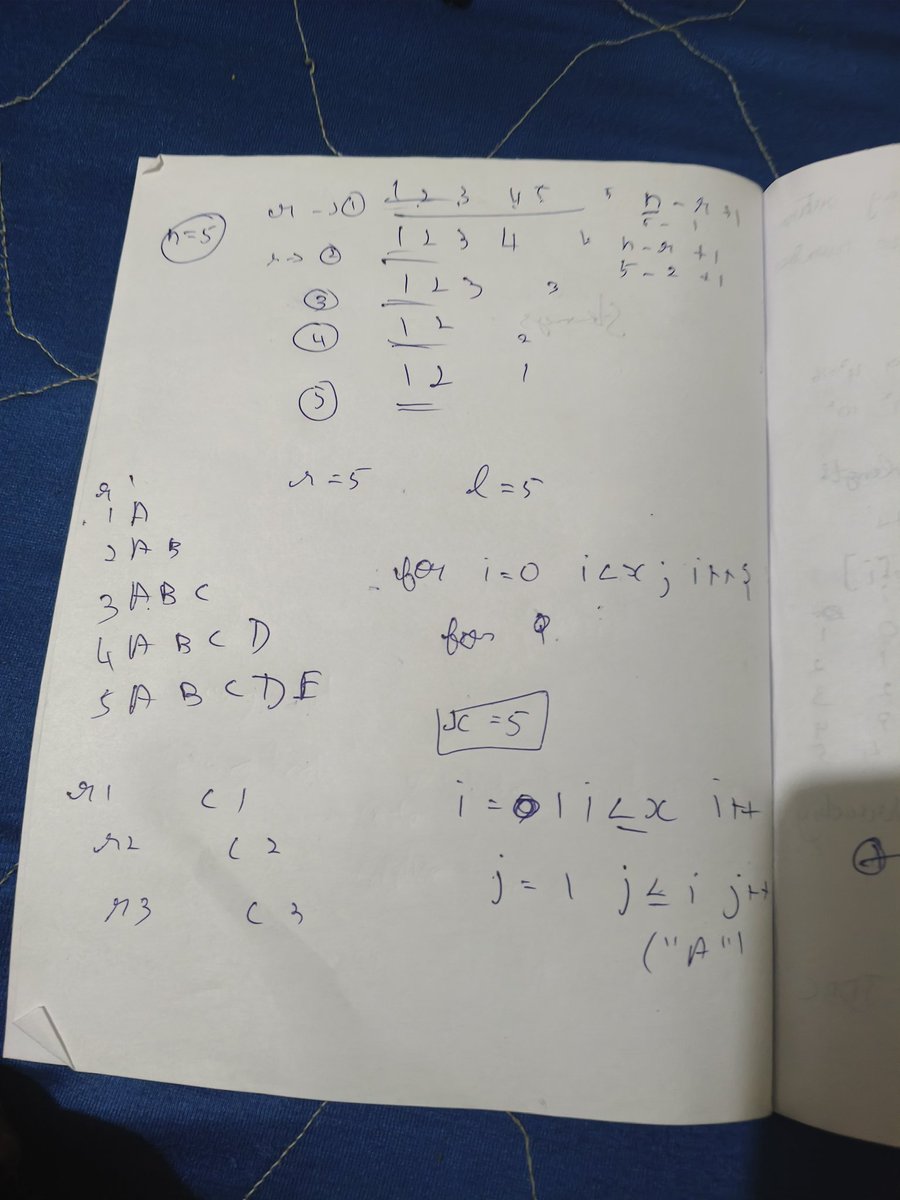 n=5
r → ① 1 2 3 4 5 5 n - r + 1
5 - 1
r → ② 1 2 3 4 n - r + 1
5 - 2 + 1
③ 1 2 3 3
④ 1 2 2
⑤ 1 2 1
r = 5 l = 5
r
1 A
2 A B
3 A B C
4 A B C D
5 A B C D E
for i = 0 i < x ; i++;
for
x = 5
r1 c 1
r2 c 2
r3 c 3
i = 1 i ≤ x i++
j = 1 j ≤ i j++
("A")